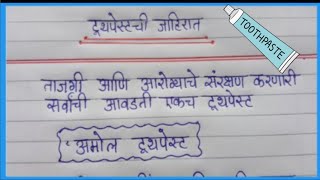 टूथपेस्टची जाहिरात
TOOTHPASTE
ताजगी आणि आरोग्याचे संरक्षण करणारी
सर्वांची आवडती एकच टूथपेस्ट
'अमोल टूथपेस्ट